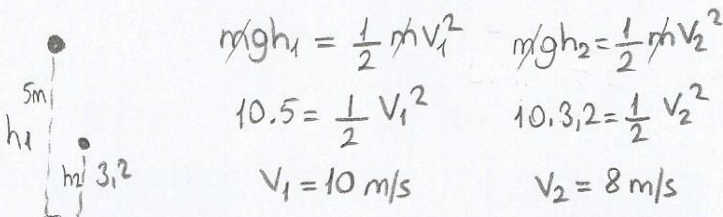 5m
h1
h2 3,2
mgh1 = 1/2 mV1²
10.5 = 1/2 V1²
V1 = 10 m/s
mgh2 = 1/2 mV2²
10.3,2 = 1/2 V2²
V2 = 8 m/s